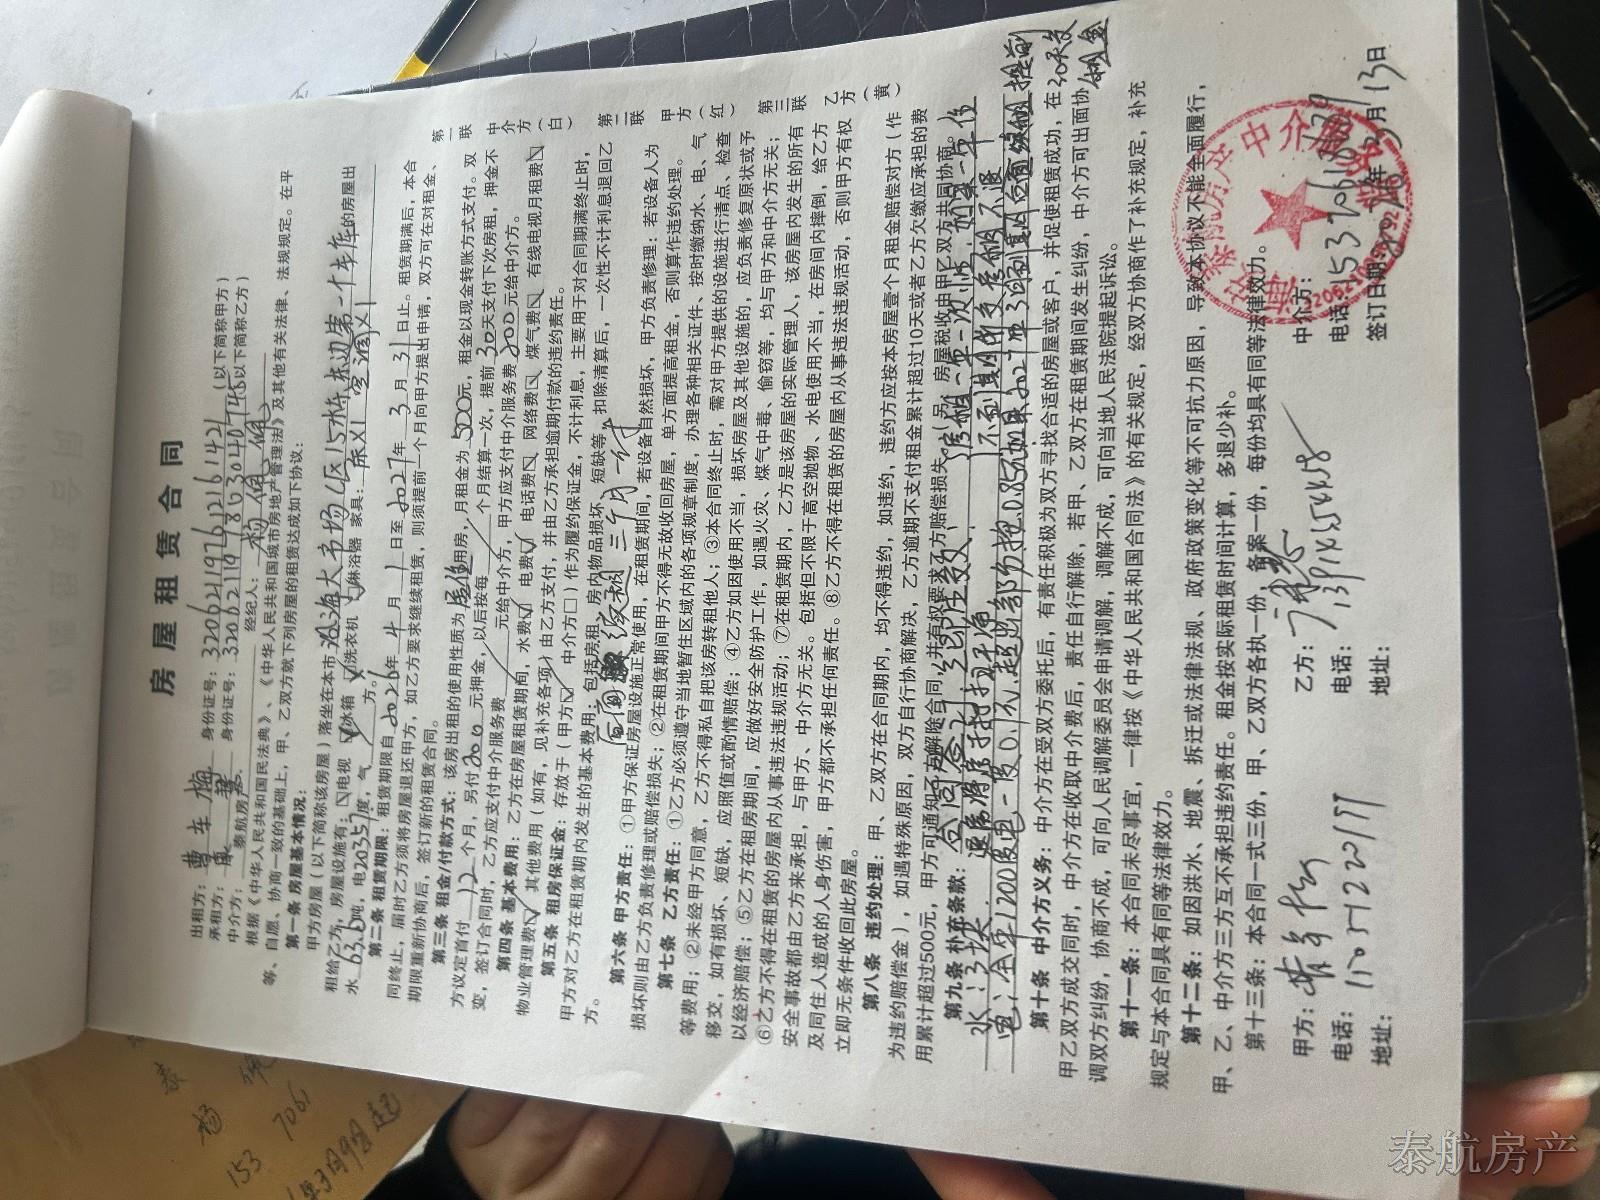 房屋租赁合同
出租方：曹车梅 身份证号：320621197612161421（以下简称甲方）
承租方： 身份证号：（以下简称乙方）
中介方：泰航房产 经纪人：
根据《中华人民共和国民法典》、《中华人民共和国城市房地产管理法》及其他有关法律、法规规定。在平
等、自愿、协商一致的基础上，甲、乙双方就下列房屋的租赁达成如下协议：
第一条 房屋基本情况：
甲方房屋（以下简称该房屋）落坐在本市 大市场C区15栋东边第一个车库的房屋出
租给乙方，房屋设施有：电视 冰箱 洗衣机 淋浴器 家具：床X1 空调X1
水63.6吨，电20357度，气 方。
第二条 租赁期限：租赁期限自2026年4月1日至2027年3月31日止。租赁期满后，本合
同终止，届时乙方须将房屋退还甲方，如乙方要求继续租赁，则须提前1个月向甲方提出申请，双方可在对租金、
期限重新协商后，签订新的租赁合同。
第三条 租金/付款方式：该房出租的使用性质为居住用房，月租金为500元，租金以现金转账方式支付。双
方议定首付12个月，另付200元押金，以后按每 个月结算一次，提前30天支付下次房租，押金不
变，签订合同时，乙方应支付中介服务费 元给中介方，甲方应支付中介服务费300元给中介方。
第四条 基本费用：乙方在房屋租赁期间，水费 电费 电话费 网络费 煤气费 有线电视月租费
物业管理费 其他费用（如有，见补充各项）由乙方支付，并由乙方承担逾期付款的违约责任。
第五条 租房保证金：存放于（甲方 中介方）作为履约保证金，不计利息，主要用于对合同期满终止时，
甲方对乙方在租赁期内发生的基本费用；包括房租、房内物品损坏、短缺等，扣除清算后，一次性不计利息退回乙
方。
第六条 甲方责任：①甲方保证房屋设施正常使用，在租赁期间，若设备自然损坏，甲方负责修理；若设备人为
损坏则由乙方负责修理或赔偿损失；②在租赁期间甲方不得无故收回房屋，单方面提高租金，否则算作违约处理。
第七条 乙方责任：①乙方必须遵守当地暂住区域内的各项规章制度，办理各种相关证件、按时缴纳水、电、气
等费用；②未经甲方同意，乙方不得私自把该房转租他人；③本合同终止时，需对甲方提供的设施进行清点、检查
移交，如有损坏、短缺，应照值或酌情赔偿；④乙方如因使用不当，损坏房屋及其他设施的，应负责修复原状或予
以经济赔偿；⑤乙方在租房期间，应做好安全防护工作，如遇火灾、煤气中毒、偷窃等，均与甲方和中介方无关；
⑥乙方不得在租赁的房屋内从事违法违规活动；⑦在租赁期内，乙方是该房屋的实际管理人，该房屋内发生的所有
安全事故都由乙方来承担，与甲方、中介方无关。包括但不限于高空抛物、水电使用不当，在房间内摔倒，给乙方
及同住人造成的人身伤害，甲方都不承担任何责任。⑧乙方不得在租赁的房屋内从事违法违规活动，否则甲方有权
立即无条件收回此房屋。
第八条 违约处理：甲、乙双方在合同期内，均不得违约，如违约，违约方应按本房屋壹个月租金赔偿对方（作
为违约赔偿金），如遇特殊原因，双方自行协商解决，乙方逾期不支付租金累计超过10天或者乙方欠缴应承担的费
用累计超过500元，甲方可通知乙方解除合同，并有权要求乙方赔偿损失。另，房屋税收由甲乙双方共同协商。
第九条 补充条款：合同签订之日即生效，房租一年一次付，如果一年住
水：3块，退房请房子打扫干净 不到期间房租不退
电：全年1200度电一度0. 不 超部分按0.85如果2027年3月到期后面续租提前
第十条 中介方义务：中介方在受双方委托后，有责任积极为双方寻找合适的房屋或客户，并促使租赁成功，在30天交
甲乙双方成交同时，中介方在收取中介费后，责任自行解除，若甲、乙双方在租赁期间发生纠纷，中介方可出面协租金
调双方纠纷，协商不成，可向人民调解委员会申请调解，调解不成，可向当地人民法院提起诉讼。
第十一条：本合同未尽事宜，一律按《中华人民共和国合同法》的有关规定，经双方协商作了补充规定，补充
规定与本合同具有同等法律效力。
第十二条：如因洪水、地震、拆迁或法律法规、政府政策变化等不可抗力原因，导致本协议不能全面履行，
甲、乙、中介方三方互不承担违约责任。租金按实际租赁时间计算，多退少补。
第十三条：本合同一式三份，甲、乙双方各执一份，备案一份，每份均具有同等法律效力。
甲方： 乙方： 中介方：
电话： 电话： 电话：
地址： 地址： 签订日期： 年3月13日
第一联 中介方（白） 第二联 甲方（红） 第三联 乙方（黄）
泰航房产中介服务
杨
153 7061
泰航房产